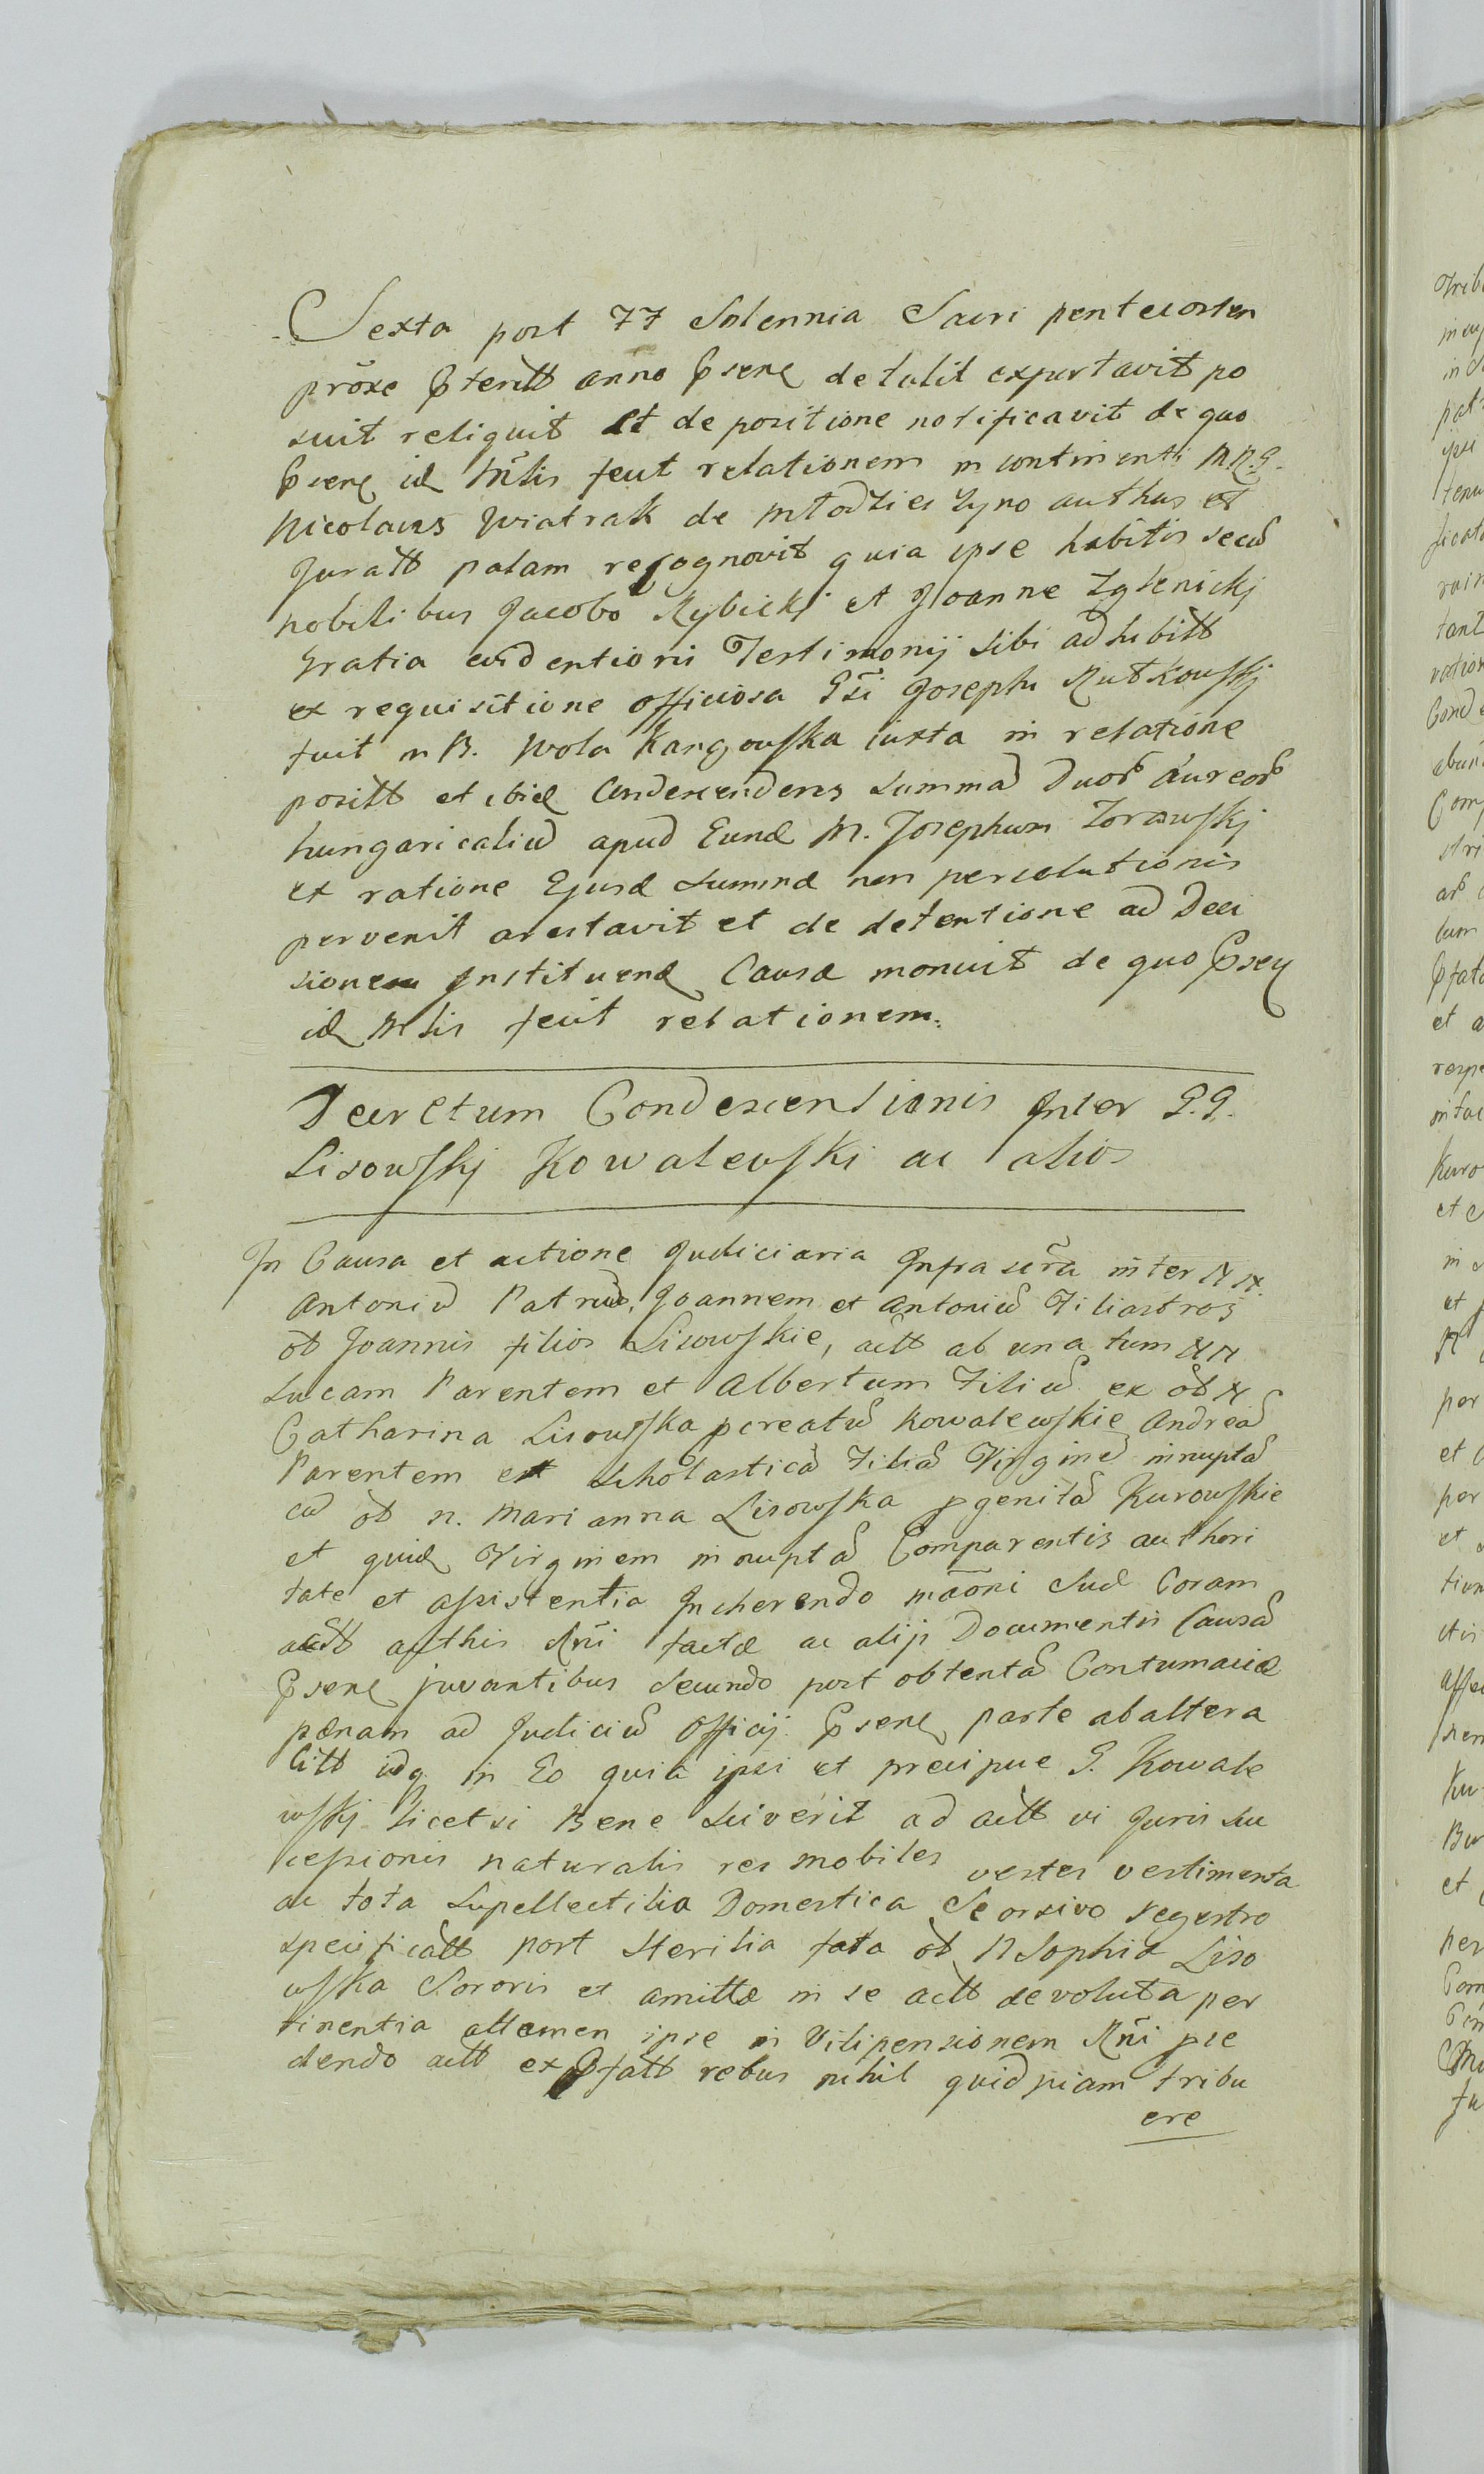 Sexta post 77 Solennia Sacri pentecosten
prõxe ꝑteritt anno ꝑsenꝭ detulit exportavit po
suit reliquit Et de positione notificavit de quo
ꝑsenꝭ id Mĩlis fecit relationem in continenti M.N.G.
Nicolaus Wiatrak de Młodzieszyno authus et
Juratt palam recognovit quia ipse habitis secũ
nobilibus Jacobo Rybicki et Joanne Zglenickj
gratia evidentioris Testimonij sibi adhibitt
ex requisitione officiosa Gsĩ Josephi Rutkowskj
fuit in B. Wola Kargowska iuxta in relatione
positt et ibid Condescendens Summã Duor Aureor
hungaricaliũ apud Eund M. Josephum Zorawskj
et ratione Ejusd Summæ non persolutionis
pervenit arestavit et de detentione ad Deci
sionem Instituendꝭ Causæ monuit de quo ꝑsenꝭ
id Mlis fecit relationem.
Decretum Condescensionis Inter G.G.
Lisowskj Kowalewski ac alios
In Causa et actione Judiciaria Infra scrã inter NN.
Antoniũ Patruũ, Joannem et Antoniũ Filiastros
ob Joannis filios Lisowskie, actt ab una tum NN
Lucam Parentem et Albertum Filiũ ex ob N
Catharina Lisowska pcreatũ Kowalewskie Andreã
Parentem et Scholasticã Filiã Virginẽ innuptã
cũ ob n. Marianna Lisowska pgenitã Kurowskie
et quid Virginem innuptã Comparentis authori
tate et assistentia Incherendo mãoni Suæ Coram
actt acthis Rñi factæ ac alijs Documentis Causã
ꝑsenꝭ juvantibus Secundo post obtentã Contumaciæ
pænam ad Judiciũ Officij ꝑsenꝭ parte ab altera
Citt idq in Eo quia ipsi et precipue G. Kowale
wskj licet si Bene Sciverit ad actt vi Juris Suc
cessionis naturalis res mobiles vestes vestimenta
ac tota Supellectilia Domestica Seorsivo regestro
specificatt post Sterilia fata ob N Sophiæ Liso
wska Sororis et amittæ in se actt devoluta per
tinentia attamen ipse in Vilipensionem Rñi pce
dendo actt ex ꝑfatt rebus nihil quidpiam tribu
ere